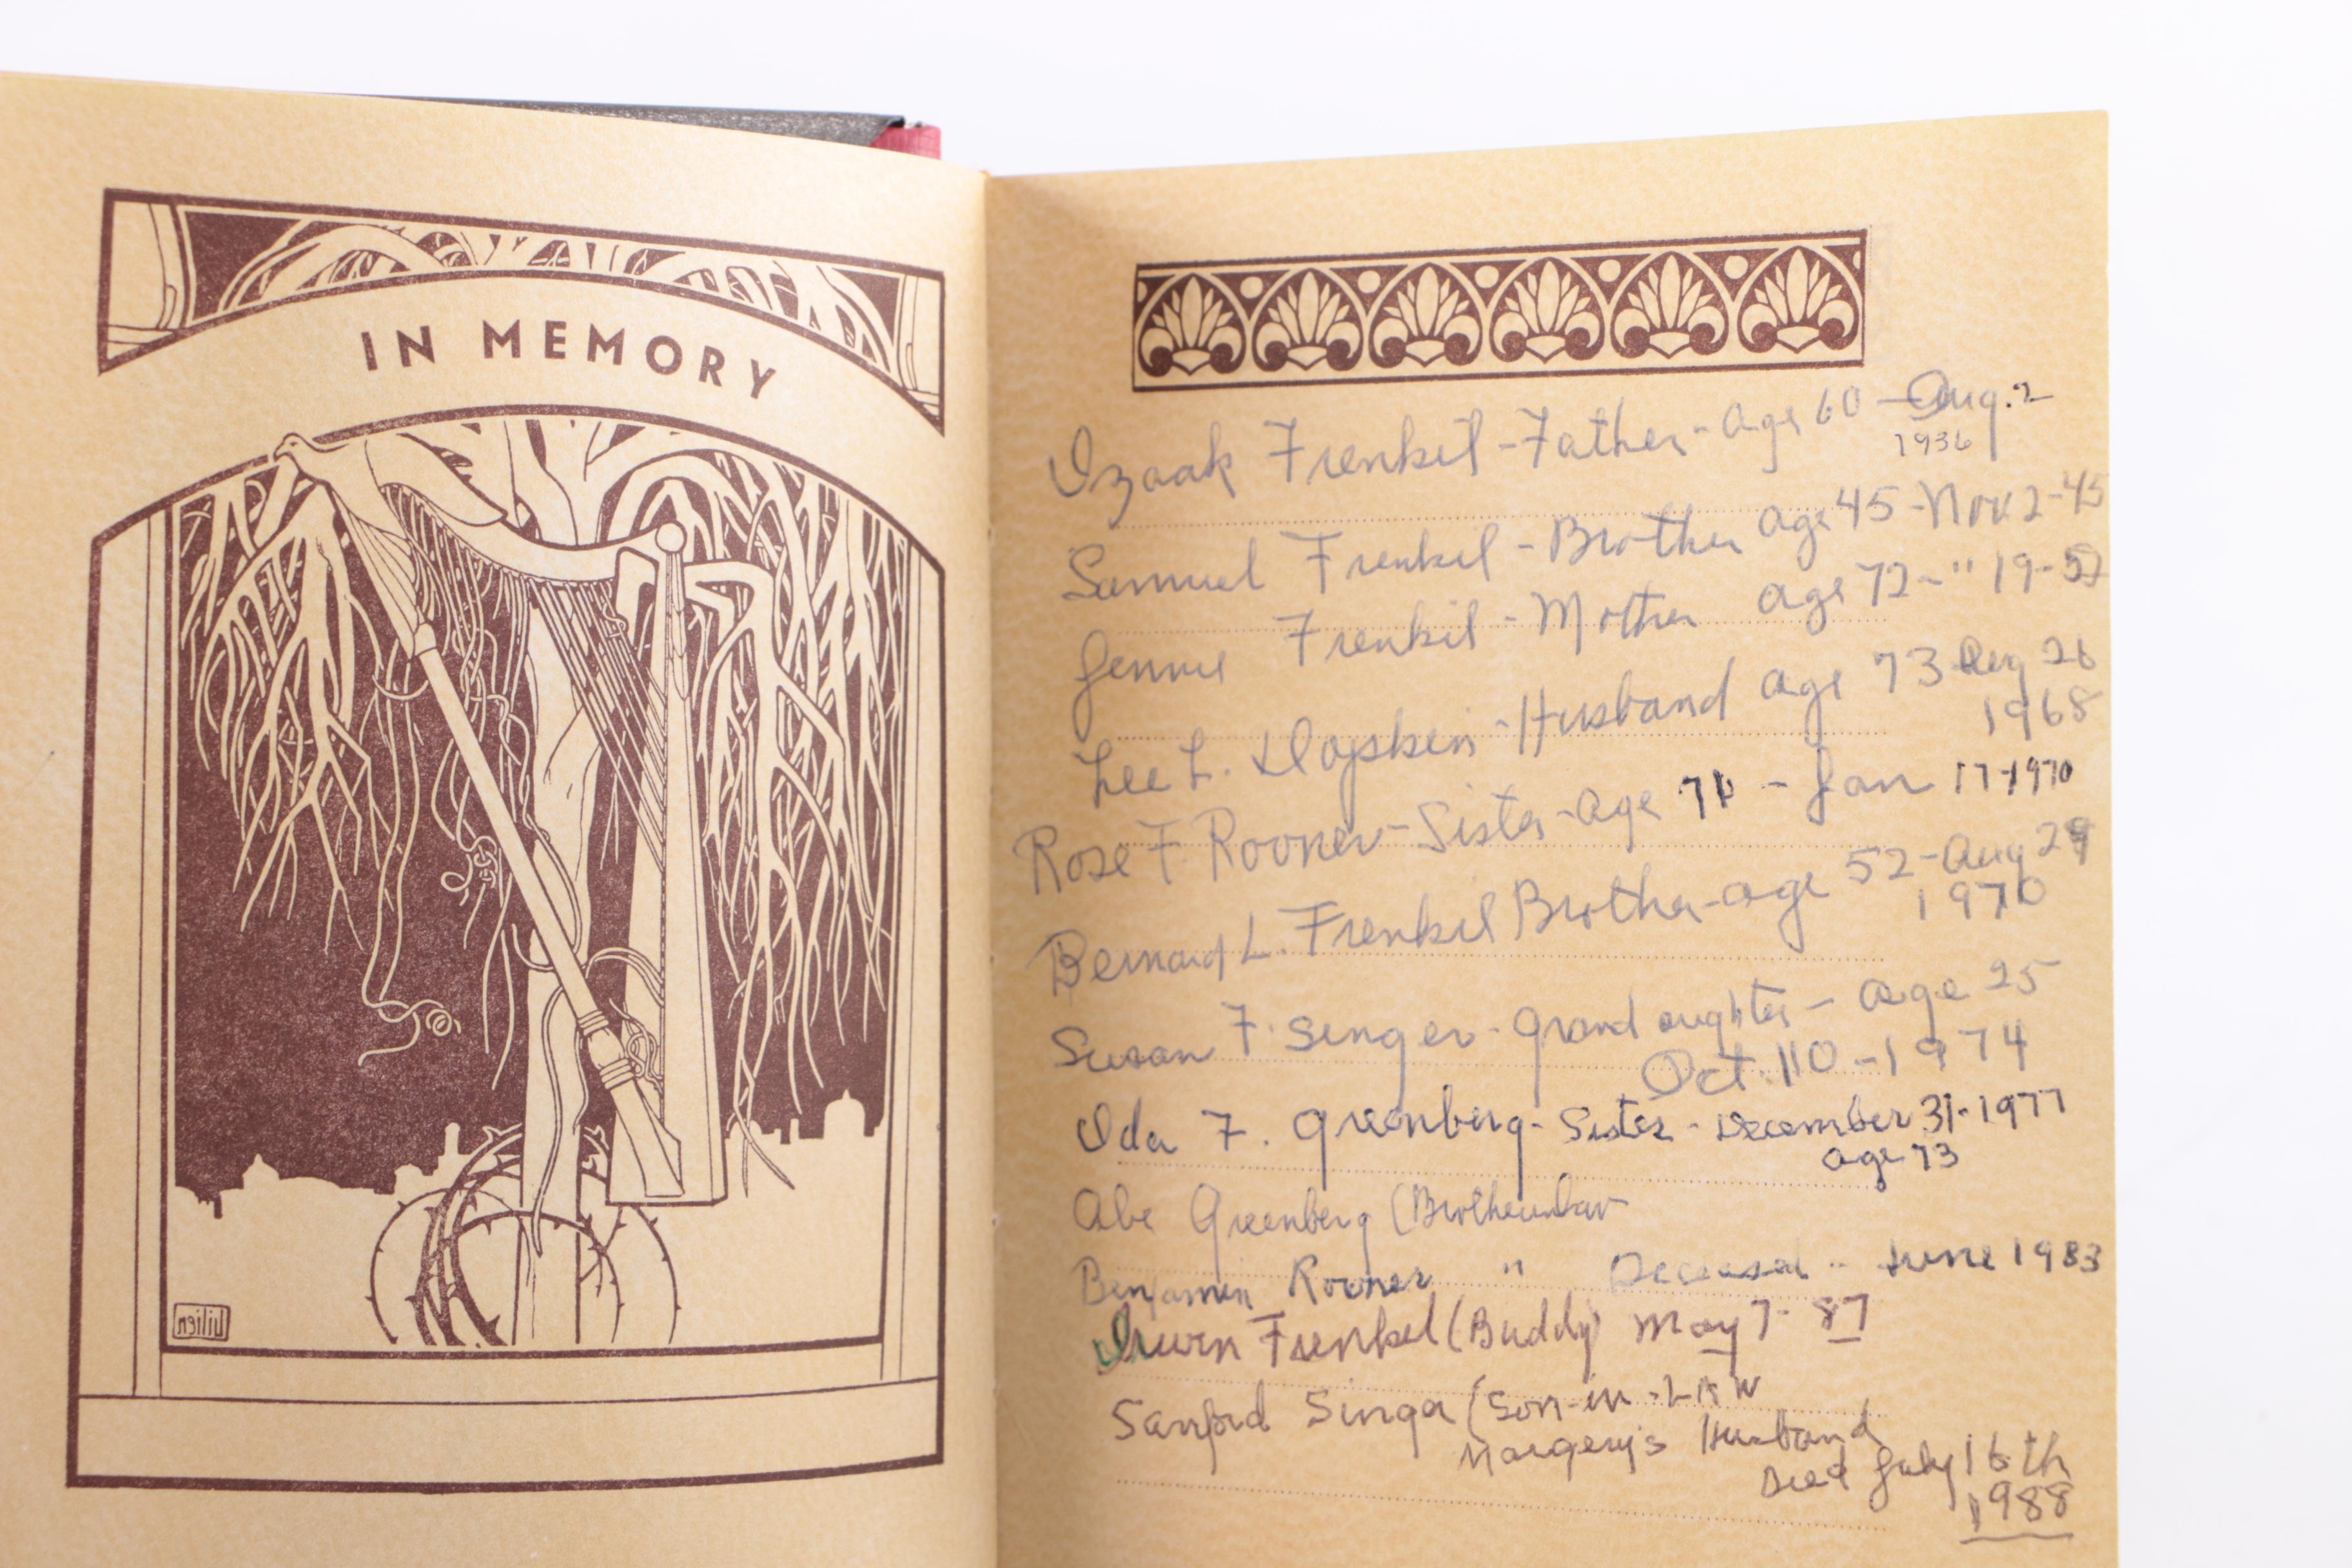 IN MEMORY
Lilien
Izaak Frenkil - Father - age 60 - Aug. 2
1936
Samuel Frenkil - Brother age 45 - Nov 2 - 45
Jennie Frenkil - Mother age 72 - " 19 - 52
Lee L. Dopkin - Husband age 73 Aug 26
1968
Rose F Rovner - Sister - age 71 - Jan 17 - 1970
Bernard L. Frenkil Brother - age 52 - Aug 29
1970
Susan F. Singer - Grand aughter - age 25
Oct. 10 - 1974
Ida F. Greenberg - Sister - December 31 - 1977
age 73
Abe Greenberg (Brotherinlaw
Benjamin Rovner " Deceased - June 1983
Irvin Frenkel (Buddy) May 7 - 87
Sanford Singer (Son-in-LAW
Margery's Husband
Died July 16th
1988